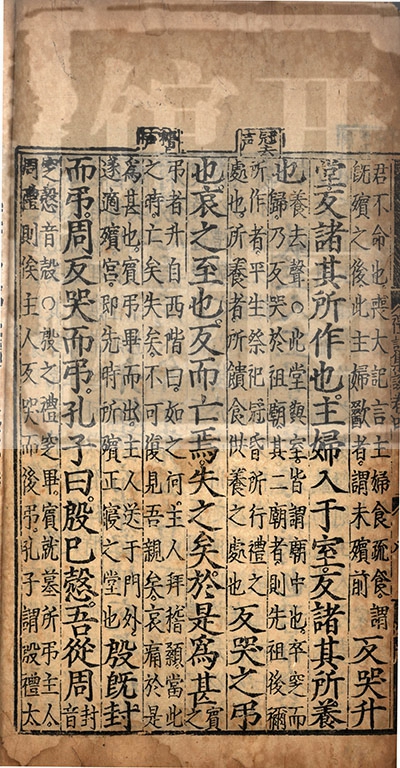 冠去声
君不命也喪大記言主婦食疏食謂
旣殯之後此主婦歠者謂未殯前
反哭升
堂反諸其所作也主婦入于室反諸其所養
也
養去聲○此堂與室皆謂廟中也卒窆而
歸乃反哭於祖廟其二廟者則先祖後禰
所作者平生祭祀冠昏所行禮之
處也所養者所饋食供養之處也
反哭之弔
也哀之至也反而亡焉失之矣於是爲甚
賓
之
弔者升自西階曰如之何主人拜稽顙當此
之時亡矣失矣不可復見吾親矣哀痛於是
爲甚也賓弔畢而出主人送于門外
遂適殯宮卽先時所殯正寢之堂也
殷旣封
而弔周反哭而弔孔子曰殷已慤吾從周
封
音
窆慤音殼○殷之禮窆畢賓就墓所弔主人
周禮則俟主人反哭而後弔孔子謂殷禮太